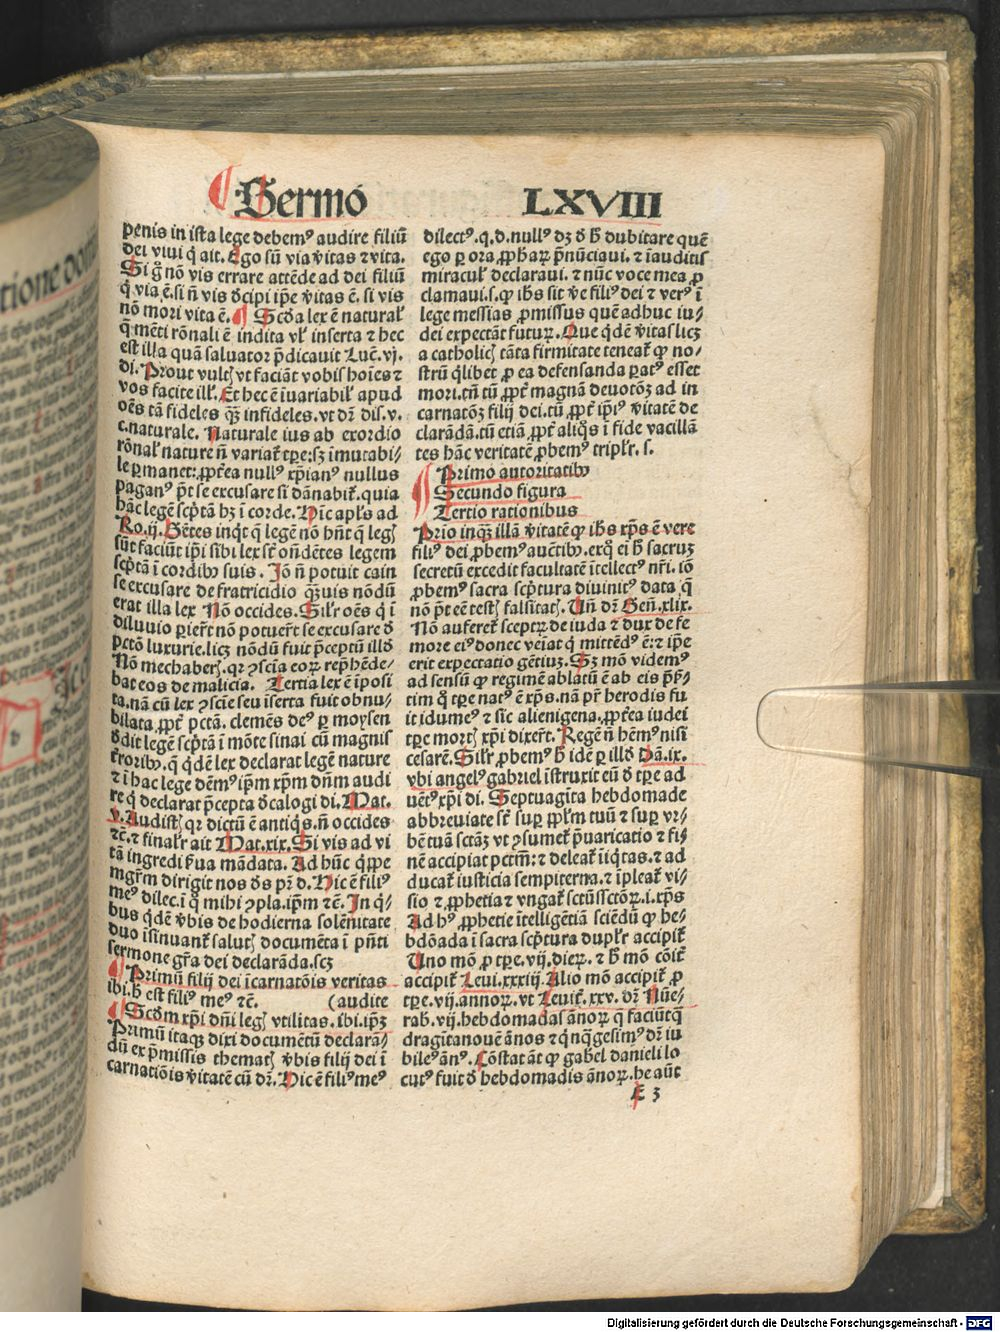 Sermo LXVIII
penis in ista lege debemꝰ audire filiū
dei viui q̇ ait. Ego sū via v̄itas ⁊ vita.
Si g̊ nō vis errare attēde ad dei filiū
q̇ via ē. si n̄ vis ꝺcipi ip̄e v̄itas ē. si vis
nō mori vita ē. Scḋa lex ē natural̕
q̄ mēti rōnali ē indita vl̕ inserta ⁊ hec
est illa quā saluator p̄dicauit Luc̄. vj.
di. Prout vultꝭ vt faciāt vobis hoīes ⁊
vos facite ill̕. Et hec ē īuariabil̕ apud
oēs tā fideles qȝ̄ infideles. vt dr̄ dis. v.
c. naturale. Naturale ius ab exordio
rōnal̕ nature n̄ variat̕ tꝑe: sȝ īmutabi/
le ꝑmanet: ꝓpt̕ea nullꝰ xp̄ianꝰ nullus
paganꝰ p̄t se excusare si dānabit̕. quia
hāc legē scp̄tā hȝ ī corde. Hīc apl̕s ad
Ro. ij. Gētes inq̇t q̄ legē nō hn̄t q̄ legꝭ
sūt faciūt ip̄i sibi lex st̕ on̄dētes legem
scp̄tā ī cordibꝰ suis. Iō n̄ potuit cain
se excusare de fratricidio qȝ̄uis nōdū
erat illa lex Nō occides. Sil̕r oēs q̇ ī
diluuio ꝑier̄t nō potuer̄t se excusare ꝺ
pctō luxurie. licȝ nōdū fuit p̄ceptū illḋ
Nō mechaberꝭ. qꝛ ꝯsciā eoꝝ rep̄hēde/
bat eos de malicia. Tertia lex ē īposi
ta. nā cū lex ꝯsciē seu īserta fuit obnu/
bilata ꝓpt̕ pctā. clemēs deꝰ ꝑ moysen
ꝺdit legē scp̄tā ī mōte sinai cū magnis
t̕roribꝰ. q̄ q̇dē lex declarat legē nature
⁊ ī hac lege dēmꝰ ip̄m xp̄m dn̄m audi
re q̇ declarat p̄cepta ꝺcalogi di. Mat.
v. Audistꝭ qꝛ dictū ē antiq̇s. n̄ occides
⁊c̄. ⁊ final̕r ait Mat. xix. Si vis ad vi
tā ingredi f̄ua mādata. Ad hūc q̇ꝑpe
mgr̄m dirigit nos ꝺs pr̄ d. Hic ē filiꝰ
meꝰ dilec. ī q̇ mihi ꝯpla. ip̄m ⁊c̄. In q̇/
bus q̇dē v̄bis de hodierna solēnitate
duo īsinuant̕ salutꝭ documēta ī pn̄ti
sermone gr̄a dei declarāda. scȝ
Primū filij dei īcarnatōis veritas
ibi. h̄ est filiꝰ meꝰ ⁊c̄. (audite
Scḋm xp̄i dn̄i legꝭ vtilitas. ibi. ip̄ȝ
Primū itaqȝ dixi documētū declarā/
dū ex p̄missis thematꝭ v̄bis filij dei ī
carnatiōis v̄itatē cū dr̄. Hic ē filiꝰ meꝰ
dilectꝰ. q. d. nullꝰ dȝ ꝺ h̄ dubitare quē
ego ꝑ ora ꝓph̄aꝝ p̄nūciaui. ⁊ īauditis
miracul̕ declaraui. ⁊ nūc voce mea ꝓ
clamaui. s. ꝙ ih̄s sit v̄e filiꝰ dei ⁊ verꝰ ī
lege messias ꝓmissus quē adhuc iu/
dei expectāt futuꝝ. Que q̇dē v̄itas licȝ
a catholicꝭ tāta firmitate teneat̕ ꝙ no/
strū q̇libet ꝓ ea defensanda ꝑatꝰ esset
mori. tn̄ tū ꝓpt̕ magnā deuotōȝ ad in
carnatōȝ filij dei. tū ꝓpt̕ ip̄iꝰ v̄itatē de
clarādā. tū etiā ꝓpt̕ aliq̇s ī fide vacillā
tes hāc veritatē ꝓbemꝰ tripl̕r. s.
Primo autoritatibꝰ
Secundo figura
Tertio rationibus
Prīo inqȝ̄ illā v̄itatē ꝙ ih̄s xp̄s ē vere
filiꝰ dei ꝓbemꝰ auc̄tibꝰ. exq̊ ei h̄ sacruȝ
secretū excedit facultatē ītellectꝰ nr̄i. iō
ꝓbemꝰ sacra scp̄tura diuinitꝰ data q̄
nō p̄t eē testꝭ falsitatꝭ. Un̄ dr̄ Gen̄. xlix.
Nō auferet̕ sceptꝝ de iuda ⁊ dux de fe
more eiꝰ donec veīat q̇ mittēdꝰ ē: ⁊ ip̄e
erit expectatio gētiuȝ. Sȝ mō videmꝰ
ad sensū ꝙ regimē ablatū ē ab eis p̄s̄
tim q̊ tꝑe natꝰ ē xp̄s. na pr̄ herodis fu
it idumeꝰ ⁊ sic alienigena. ꝓpt̕ea iudei
tꝑe mortꝭ xp̄i dixer̄t. Regē n̄ hēmꝰ nisi
cesarē. Sil̕r ꝓbemꝰ h̄ idē ꝑ illḋ Da. ix.
vbi angelꝰ gabriel īstruxit eū ꝺ tꝑe ad
uētꝰ xp̄i di. Septuagīta hebdomade
abbreuiate st̕ suꝑ pp̄l̕m tuū ⁊ suꝑ vr/
bē tuā sctāȝ vt ꝯsumet̕ p̄uaricatio ⁊ fi/
nē accipiat pctm̄: ⁊ deleat̕ īiq̇tas. ⁊ ad
ducat̕ iusticia sempiterna. ⁊ īpleat̕ vi/
sio ⁊ ꝓphetia ⁊ vngat̕ sctūs sctōꝝ. i. xp̄s
Ad hꝰ ꝓphetie ītelligētiā sciēdū ꝙ he/
bdōada ī sacra scp̄tura dupl̕r accipit̕
Uno mō ꝓ tꝑe. vij. dieꝝ. ⁊ h̄ mō cōit̕
accipit̕ Leui. xxxiij. Alio mō accipit̕ ꝓ
tꝑe. vij. annoꝝ. vt Leuit̕. xxv. dr̄ Nūe/
rab̕. vij. hebdomadas ānoꝝ q̄ faciūt q̄
dragitanouē ānos ⁊ q̇nq̄gesimꝰ dr̄ iu
bileꝰ ānꝰ. Cōstat āt ꝙ gab̕el danieli lo
cutꝰ fuit ꝺ hebdomadis ānoꝝ. he aūt
E 3
Digitalisierung gefördert durch die Deutsche Forschungsgemeinschaft - DFG